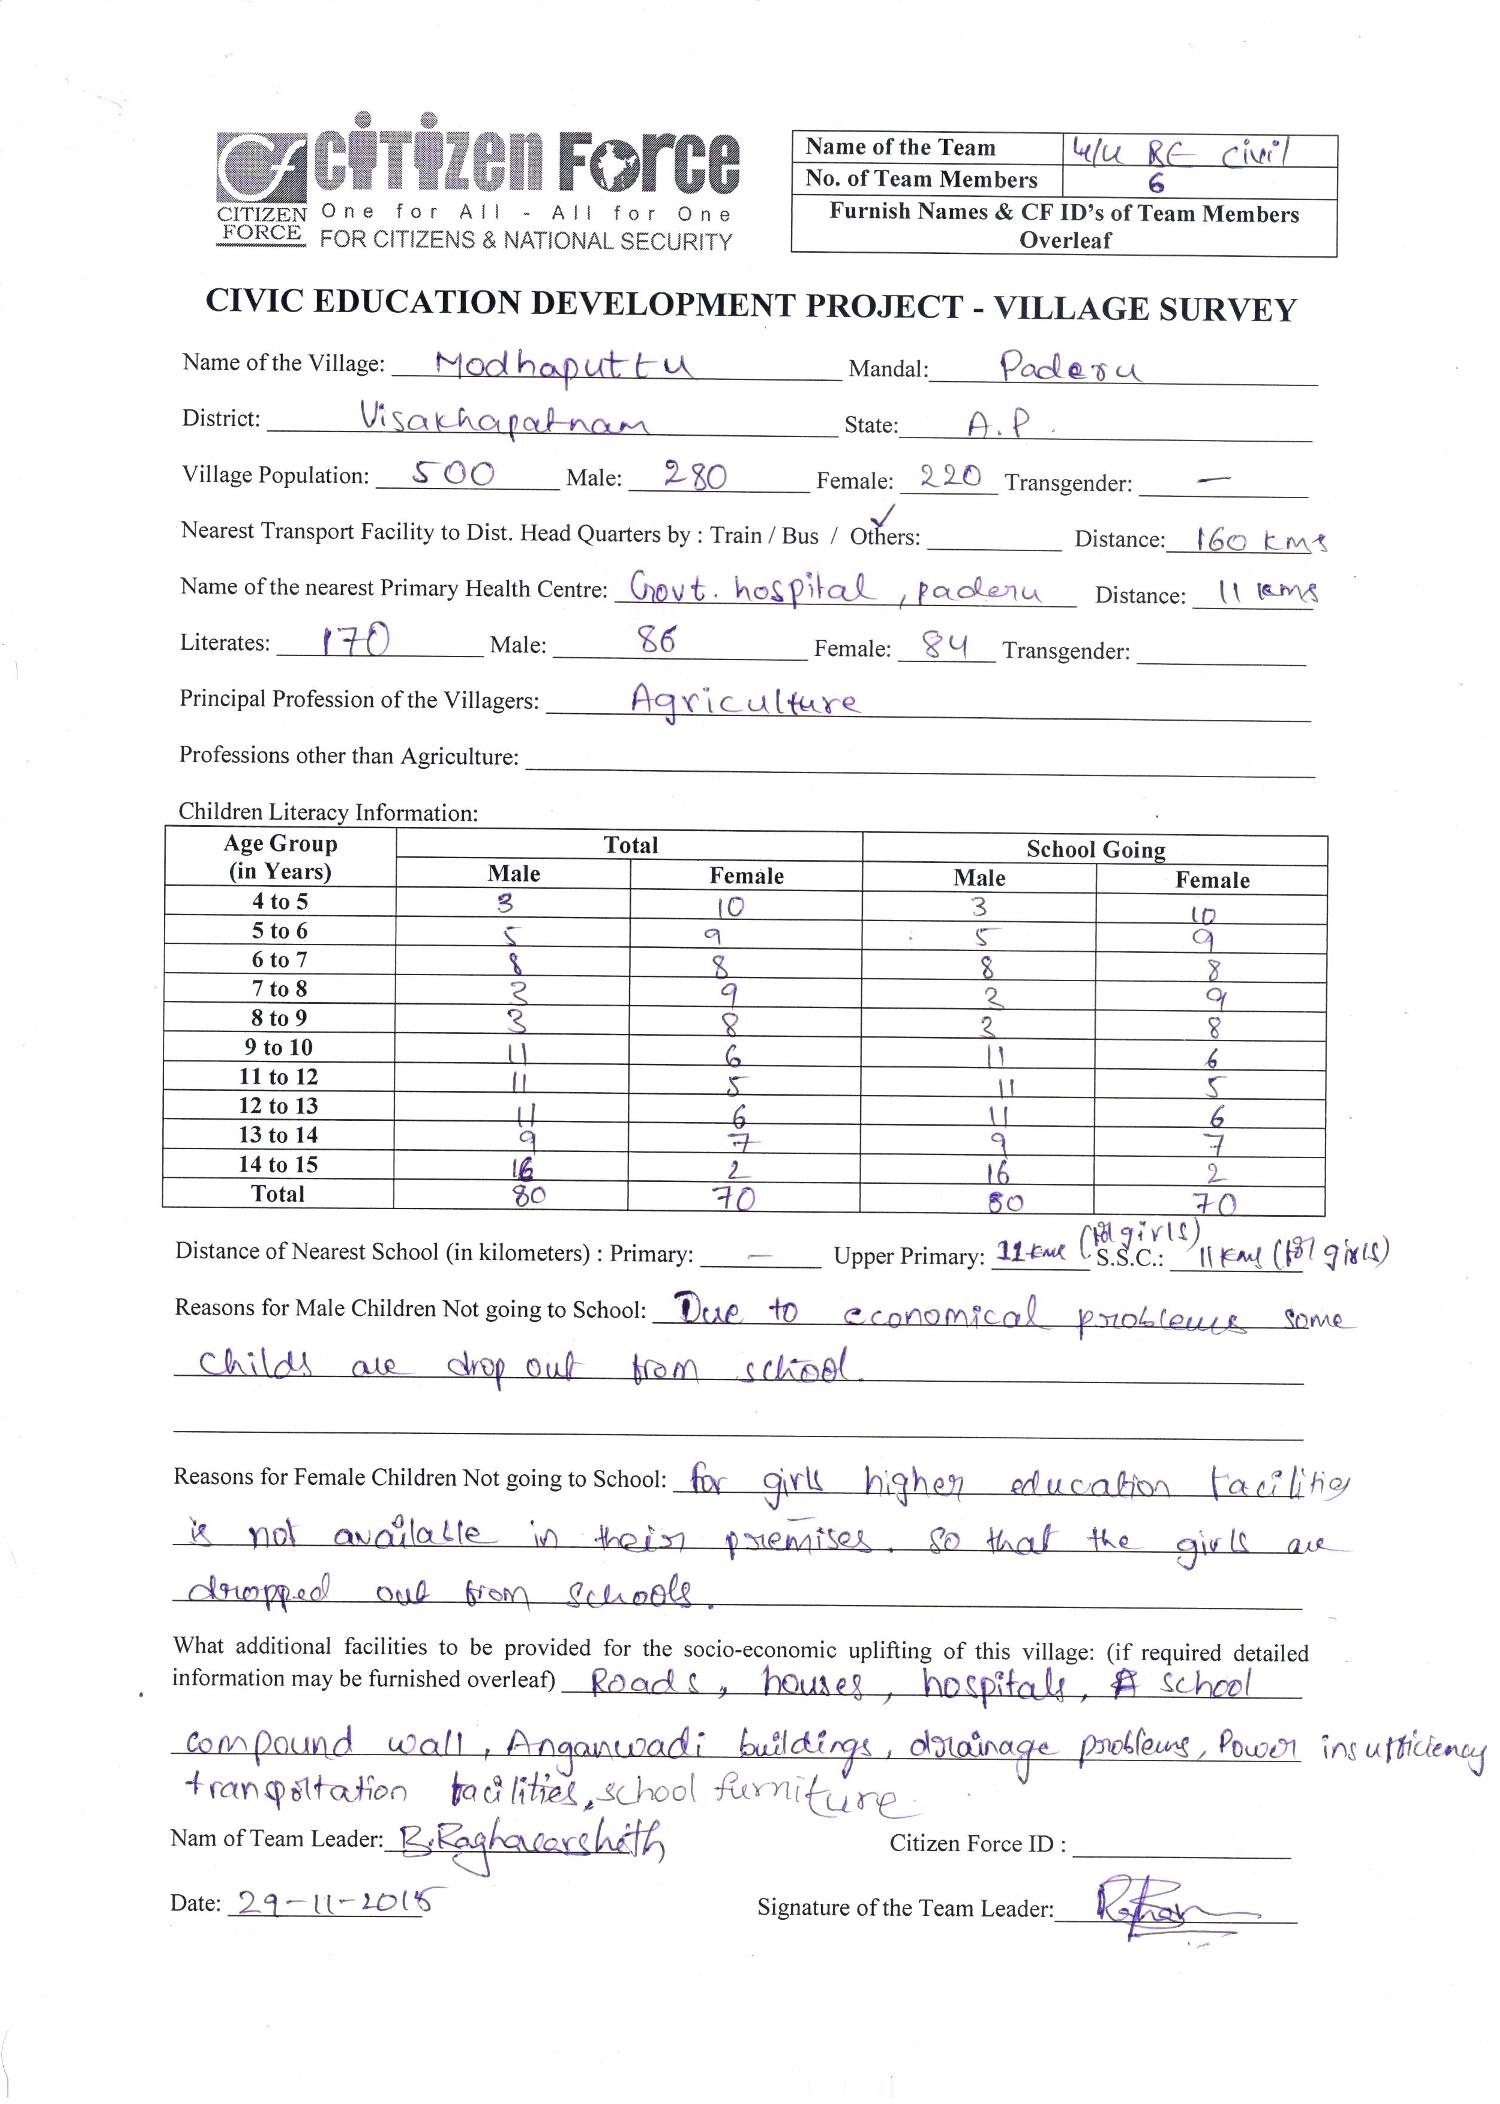 Cf CiTizen Force
CITIZEN FORCE One for All - All for One
FOR CITIZENS & NATIONAL SECURITY
Name of the Team 4/4 BE Civil
No. of Team Members 6
Furnish Names & CF ID's of Team Members
Overleaf
CIVIC EDUCATION DEVELOPMENT PROJECT - VILLAGE SURVEY
Name of the Village: Modhaputtu Mandal: Paderu
District: Visakhapatnam State: A.P.
Village Population: 500 Male: 280 Female: 220 Transgender: —
Nearest Transport Facility to Dist. Head Quarters by : Train / Bus / Others: ✓ Distance: 160 kms
Name of the nearest Primary Health Centre: Govt. hospital, paderu Distance: 11 kms
Literates: 170 Male: 86 Female: 84 Transgender:
Principal Profession of the Villagers: Agriculture
Professions other than Agriculture:
Children Literacy Information:
Age Group (in Years) Total School Going
Male Female Male Female
4 to 5 3 10 3 10
5 to 6 5 9 5 9
6 to 7 8 8 8 8
7 to 8 3 9 3 9
8 to 9 3 8 3 8
9 to 10 11 6 11 6
11 to 12 11 5 11 5
12 to 13 11 6 11 6
13 to 14 9 7 9 7
14 to 15 16 2 16 2
Total 80 70 80 70
Distance of Nearest School (in kilometers) : Primary: — Upper Primary: 11 kms (for girls) S.S.C.: 11 kms (for girls)
Reasons for Male Children Not going to School: Due to economical problems some
childs are drop out from school.
Reasons for Female Children Not going to School: for girls higher education facilities
is not available in their premises. so that the girls are
dropped out from schools.
What additional facilities to be provided for the socio-economic uplifting of this village: (if required detailed
information may be furnished overleaf) Roads, houses, hospitals, school
compound wall, Anganwadi buildings, drainage problems, Power insufficiency
transportation facilities, school furniture.
Nam of Team Leader: B. Raghavarshith Citizen Force ID :
Date: 29-11-2015 Signature of the Team Leader: